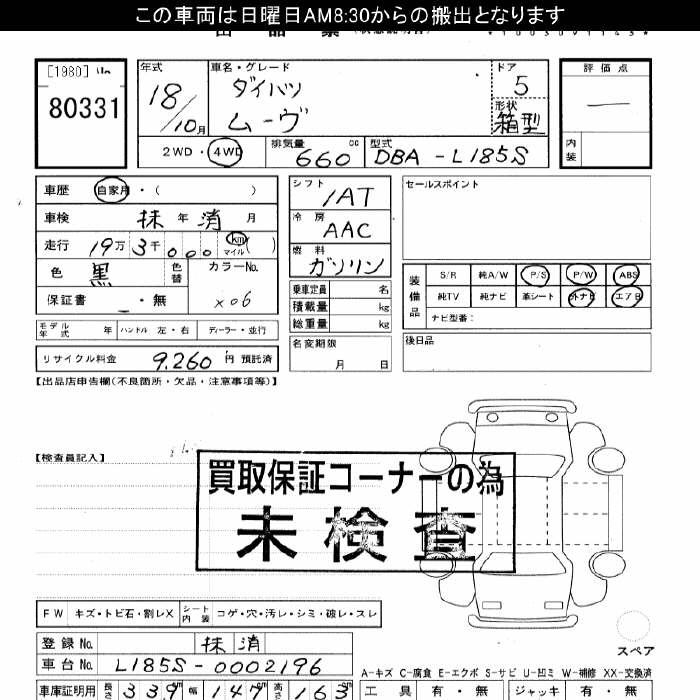 この車両は日曜日AM8:30からの搬出となります
[1980]
80331
年式 車名・グレード ドア 評価点
18/10月 ダイハツ 5
ムーヴ 形状 箱型
2WD・4WD 排気量 660 cc 型式 DBA-L185S 内装
車歴 自家用・( )
車検 抹年消月
走行 19万3千000 km マイル( )
色 黒 色替 カラーNo.
保証書 ・無 X06
モデル年式 年 ハンドル 左・右 ディーラー・並行
リサイクル料金 9,260円預託済
シフト 1AT
冷房 AAC
燃料 ガソリン
乗車定員 名
積載量 kg
総重量 kg
名変期限
月 日
セールスポイント
装備品 S/R 純A/W P/S P/W ABS
純TV 純ナビ 革シート 外ナビ エアB
ナビ型番:
後日品
【出品店申告欄(不良箇所・欠品・注意事項等)】
【検査員記入】
買取保証コーナーの為
未検査
FW キズ・トビ石・割レX シート内装 コゲ・穴・汚レ・シミ・破レ・スレ
登録No. 抹消
車台No. L185S-0002196
スペア
A-キズ C-腐食 E-エクボ S-サビ U-凹ミ W-補修 XX-交換済
車庫証明用 長さ 339 cm 幅 147 cm 高さ 163 cm 工具 有・無 ジャッキ 有・無